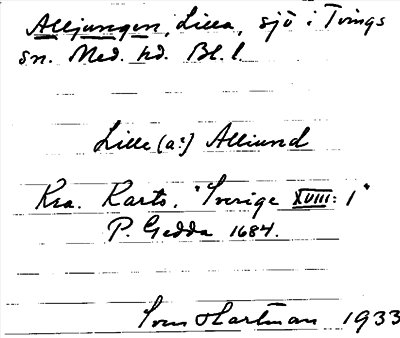 Alljungen, Lilla, sjö i Tvings
sn. Med. hd. Bl. l.
Lille (a:) Alliund
Kra. Karto. "Sverige XVIII: 1"
P. Gedda 1684.
Sven Hartman 1933